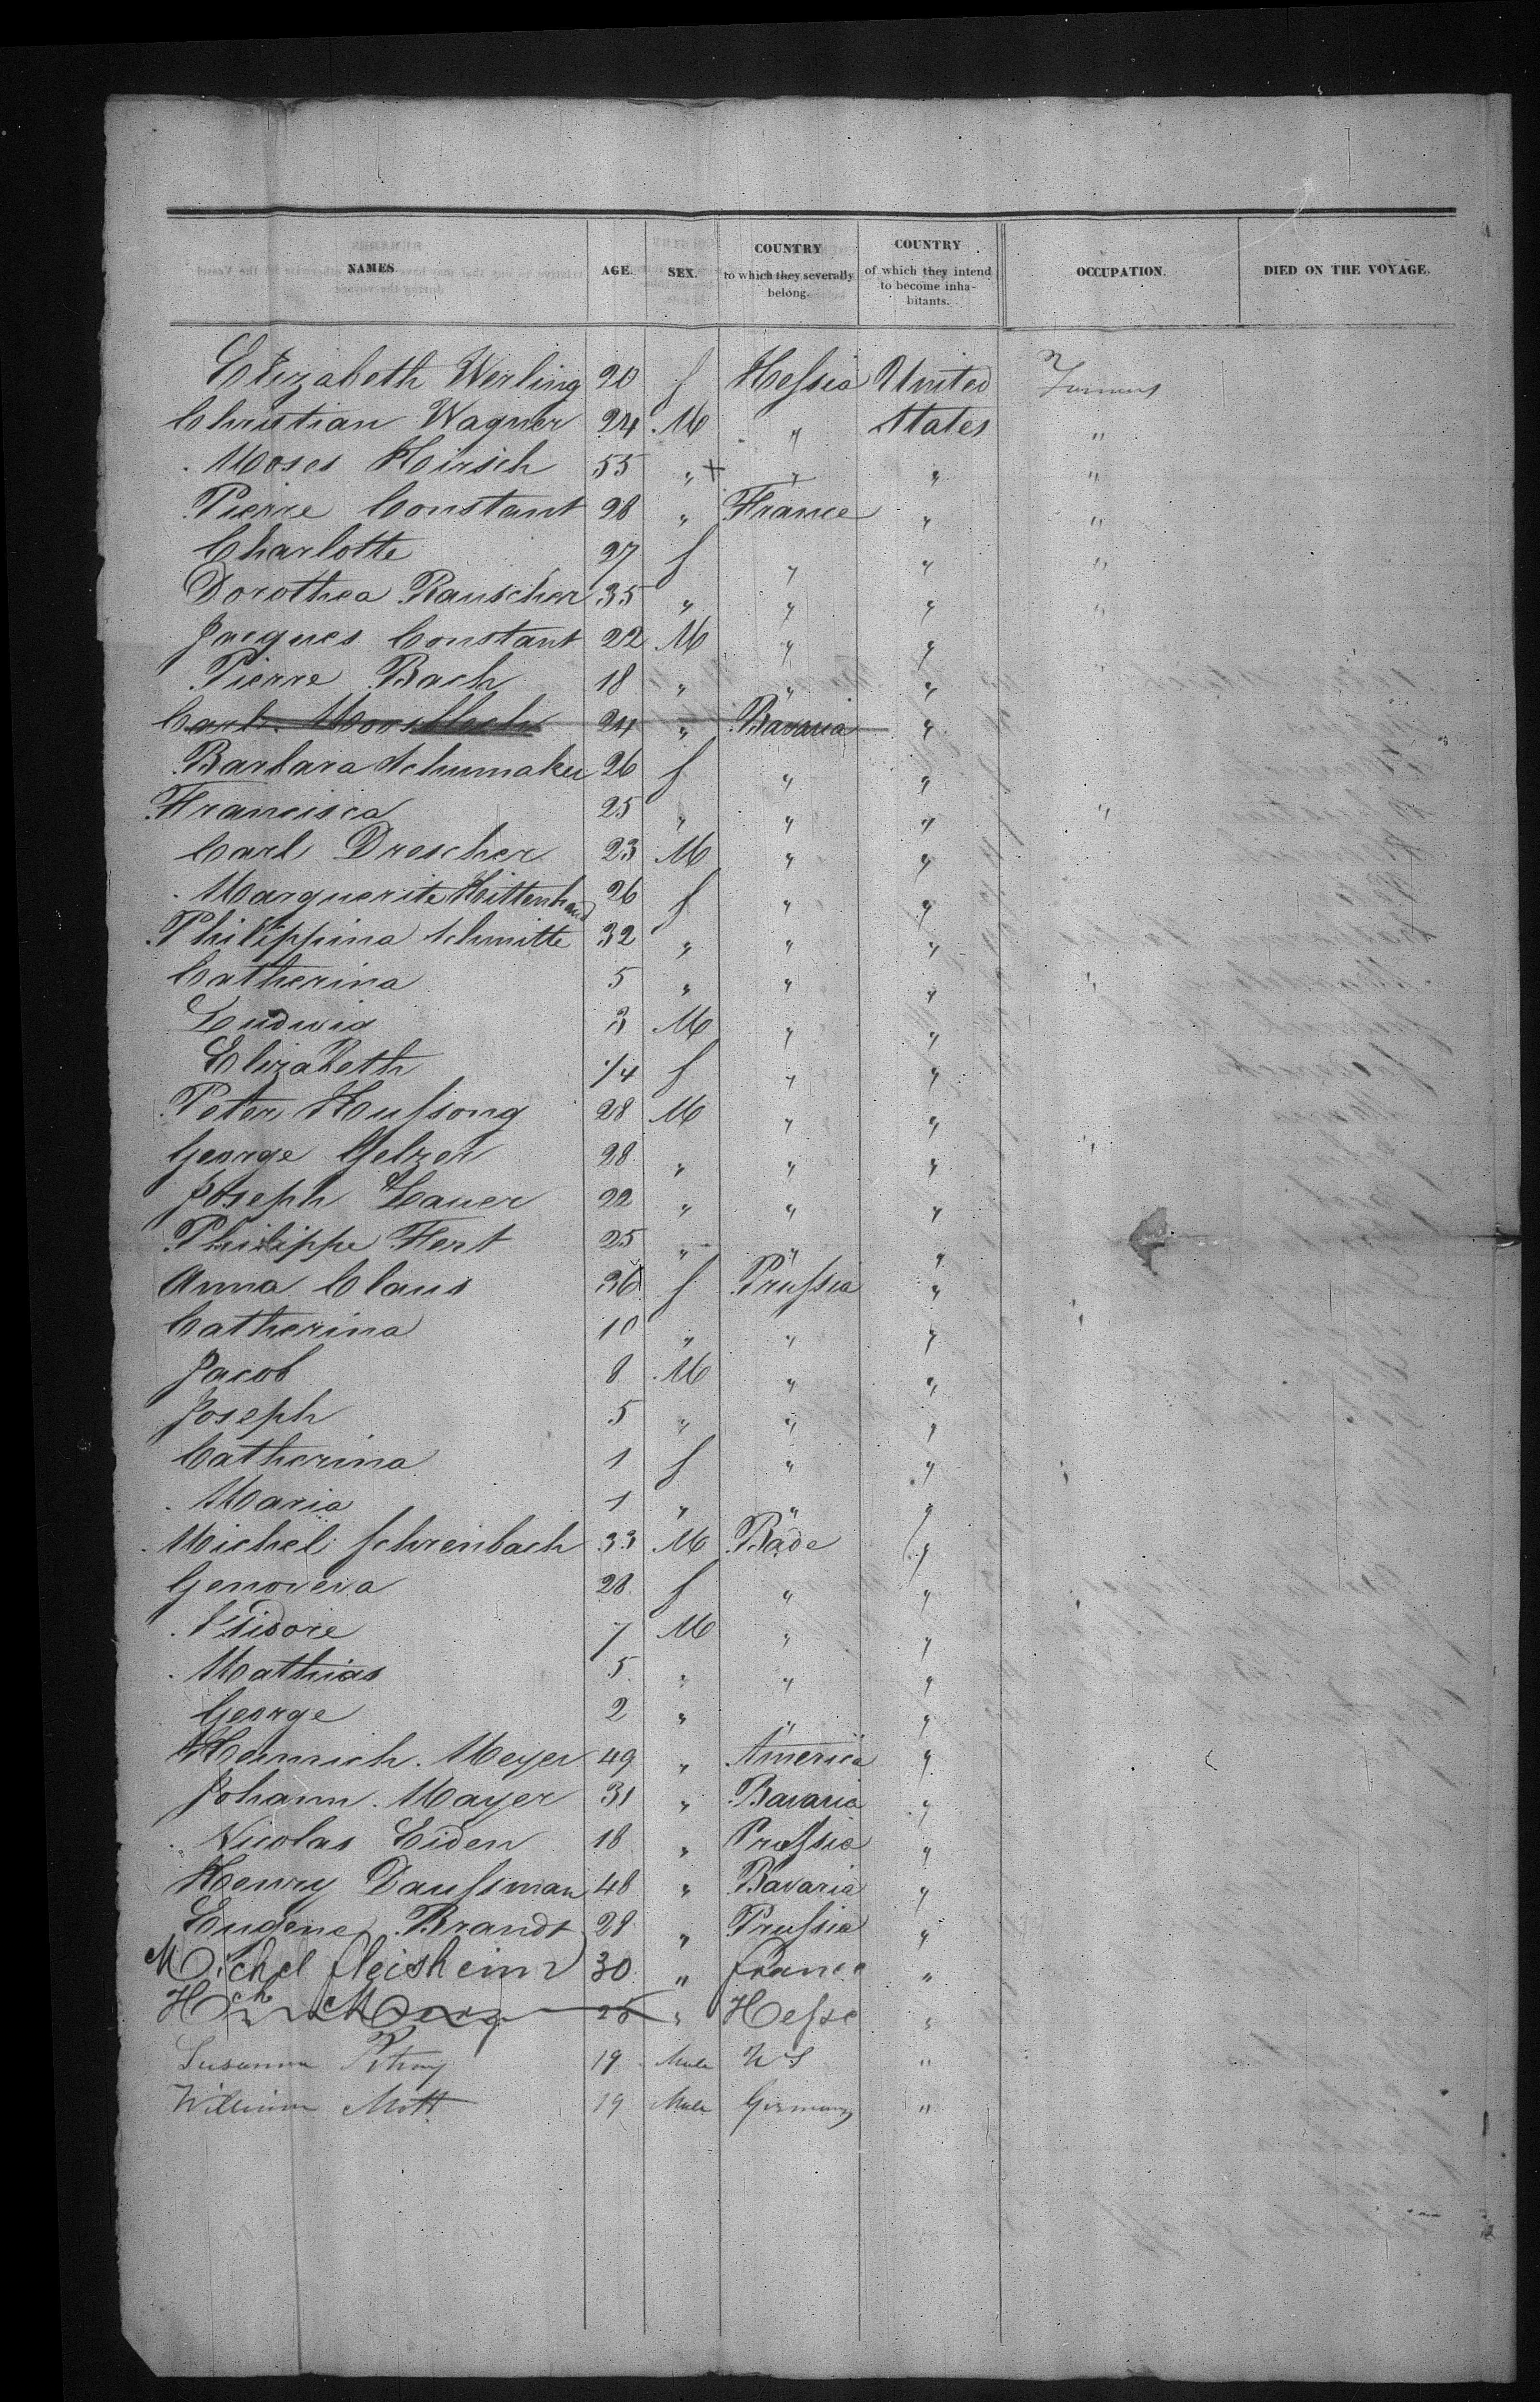 NAMES AGE. SEX. COUNTRY to which they severally belong. COUNTRY of which they intend to become inhabitants. OCCUPATION. DIED ON THE VOYAGE.
Elizabeth Werling 20 f Hessia United
Christian Wagner 24 M " States "
Moses Hirsch 55 " + " " "
Pierre Constant 28 " France " "
Charlotte 27 f " " "
Dorothea Rauscher 35 " " " "
Jacques Constant 22 M " "
Pierre Bach 18 " " "
Carl 24 " Bavaria "
Barbara Schumaker 26 f " "
Francisca 25 " " " "
Carl Drescher 23 M " "
Marguerite Hittenhand 26 f " "
Philippina Schmitte 32 " " "
Catherina 5 " " "
Ludwig 3 M " "
Elizabeth 1/4 f " "
Peter Hussong 28 M " "
George Gelzer 28 " " "
Joseph Lauer 22 " " "
Philippe Fert 25 " " "
Anna Claus 36 f Prussia "
Catherina 10 " " "
Jacob 8 M " "
Joseph 5 " " "
Catherina 1 f " "
Maria 1 " " "
Michel Schreinbach 33 M Bade "
Genoveva 28 f " "
Isidore 7 M " "
Mathias 5 " " "
George 2 " " "
Heinrich Meyer 49 " America "
Johann Mayer 31 " Bavaria "
Nicolas Eiden 18 " Prussia "
Henry Daussman 48 " Bavaria "
Eugene Brandt 28 " Prussia "
Michel fleisheim 30 " france "
Hch 25 " Hesse "
Susanna 19 Male US "
William Mott 19 Male Germany "